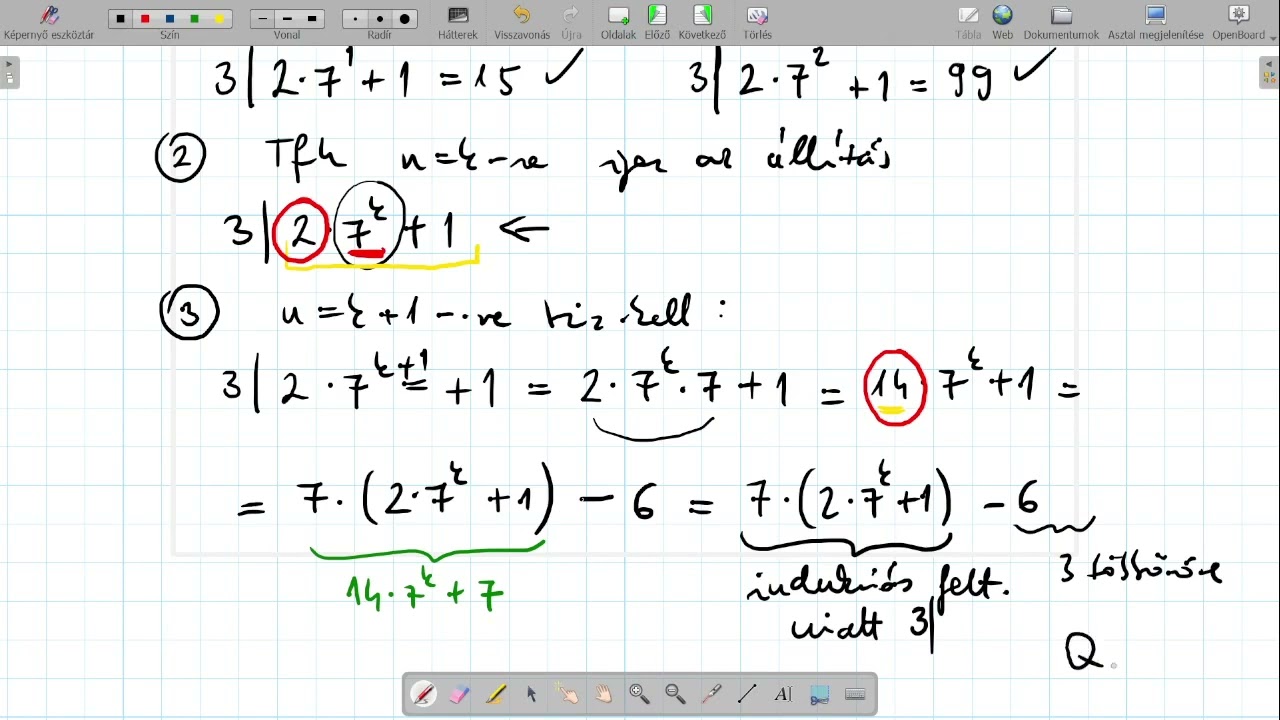 Képernyő eszköztár Szín Vonal Radír Hátterek Visszavonás Újra Oldalak Előző Következő Törlés Tábla Web Dokumentumok Asztal megjelenítése OpenBoard
3 | 2·7¹ + 1 = 15 ✓ 3 | 2·7² + 1 = 99 ✓
② Tfh n=k-re igaz az állítás
3 | 2·7ᵏ + 1 ←
③ n=k+1-re biz. kell:
3 | 2·7ᵏ⁺¹ + 1 = 2·7ᵏ·7 + 1 = 14·7ᵏ + 1 =
= 7·(2·7ᵏ + 1) − 6 = 7·(2·7ᵏ+1) − 6
14·7ᵏ + 7 indukciós felt. 3 többszöröse
miatt 3|
Q.
A|